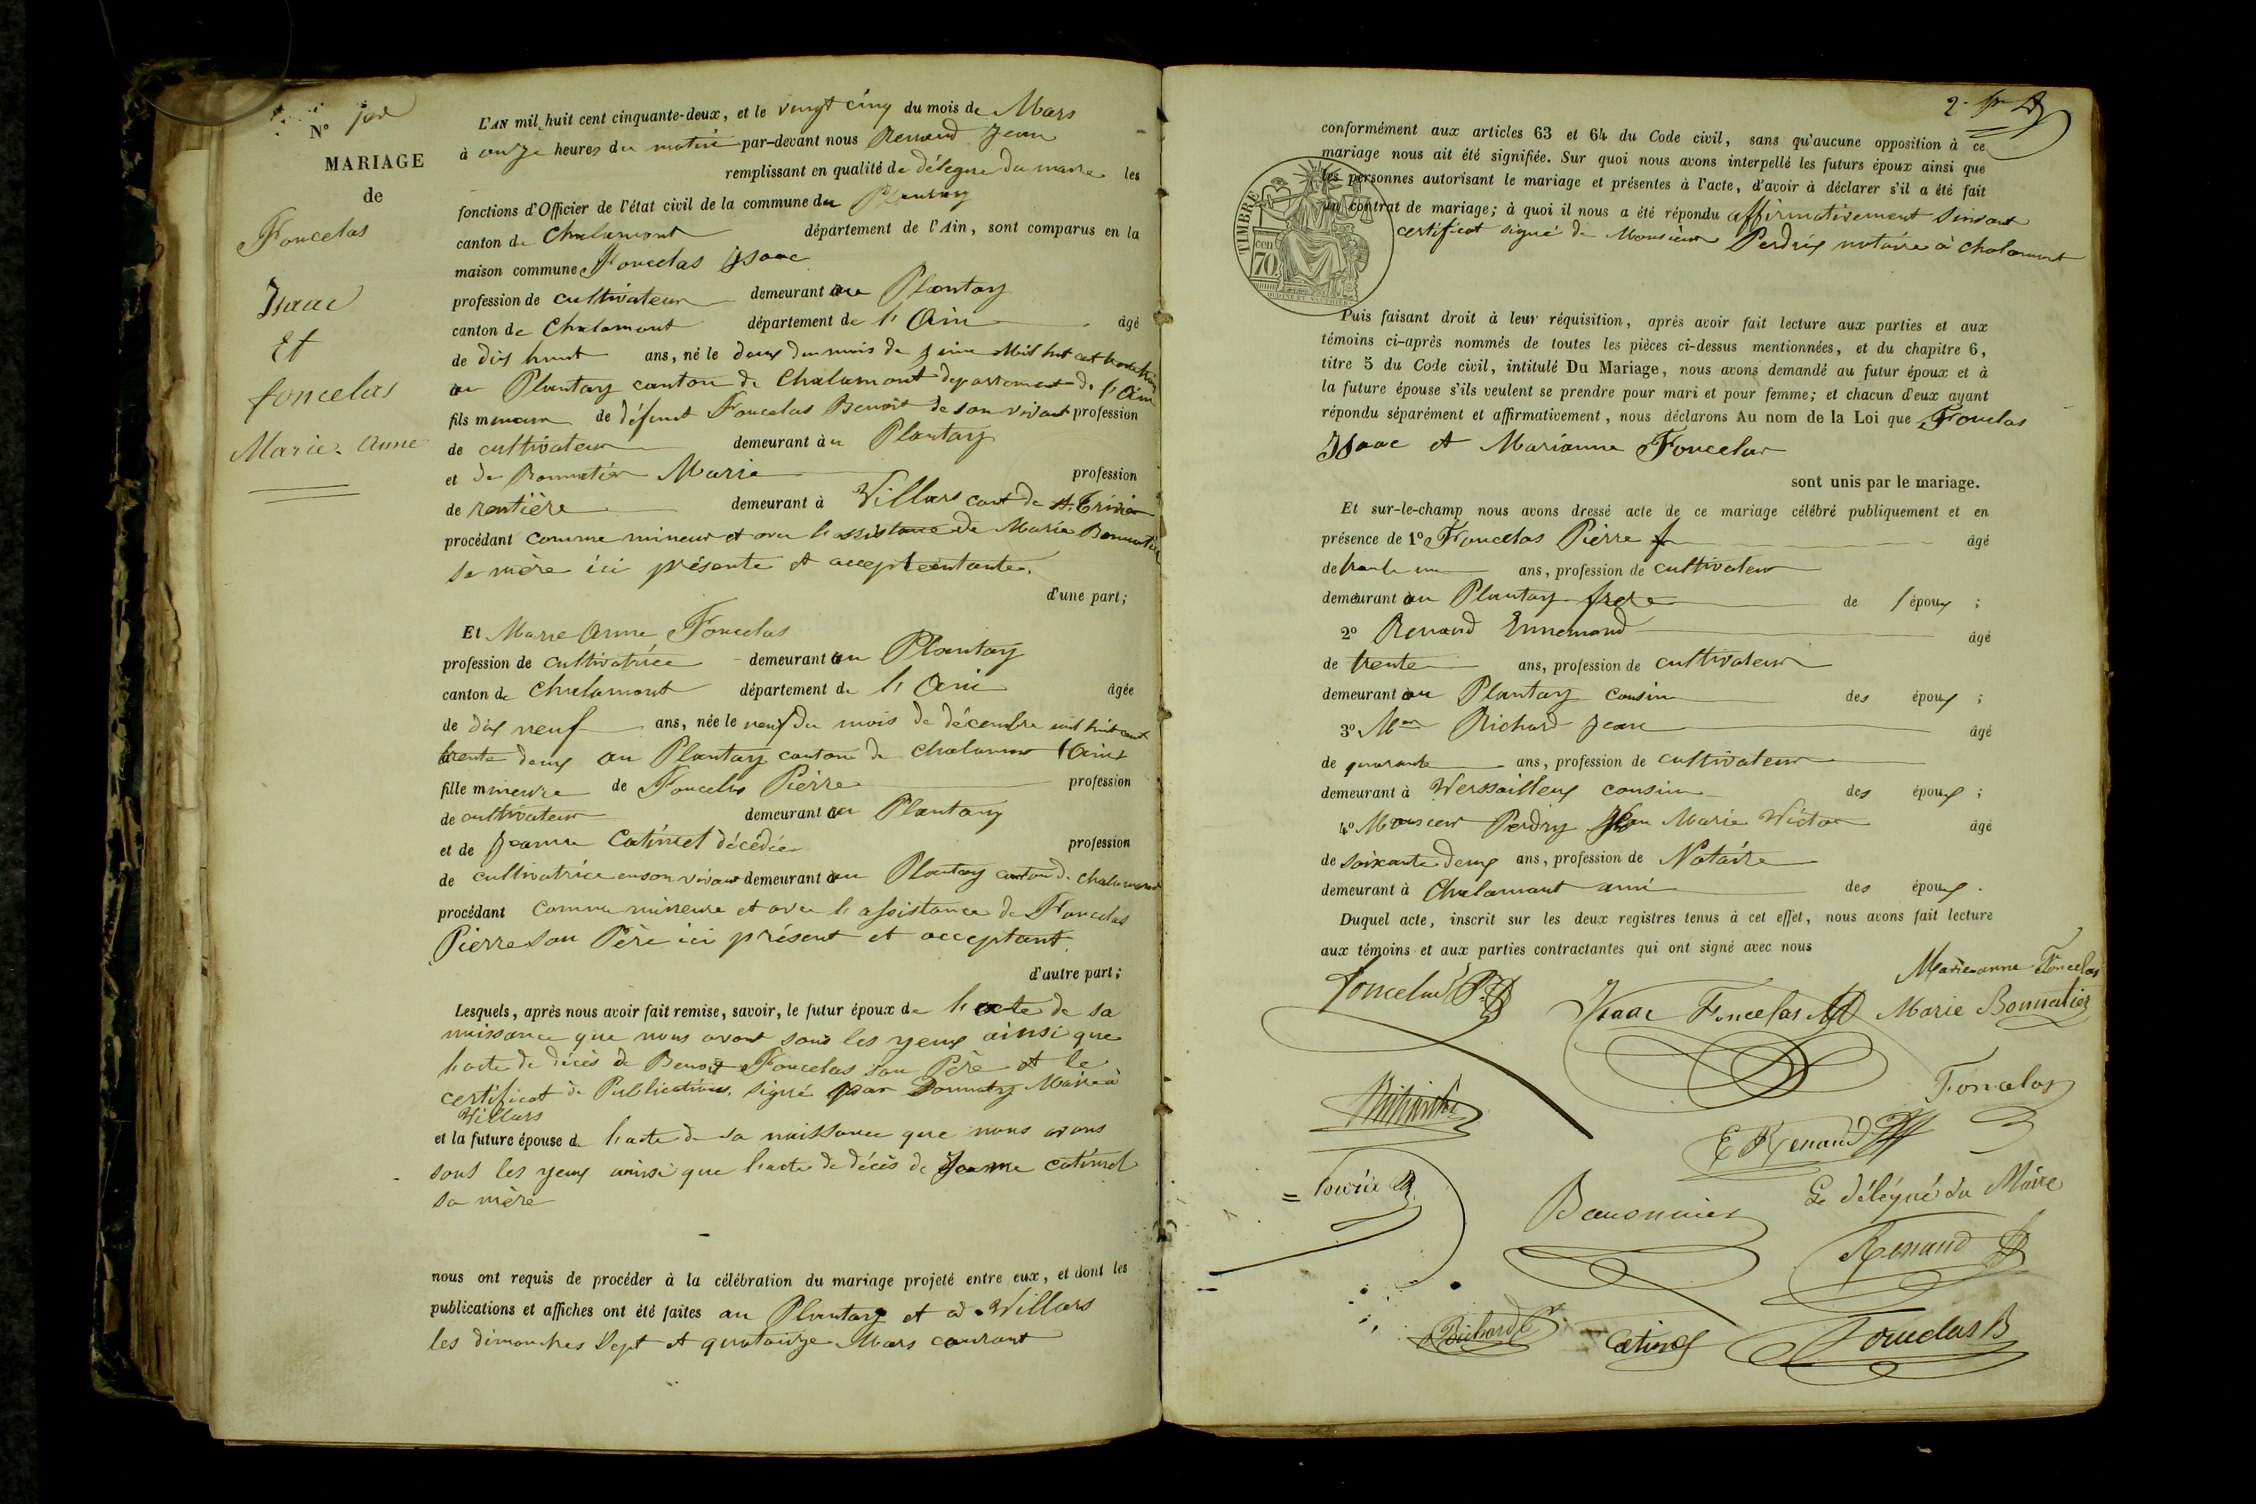 N°
MARIAGE
de
Foncelas
Isaac
Et
foncelas
Marie-Anne
L'AN mil huit cent cinquante-deux, et le vingt cinq du mois de Mars
à onze heures du matin par-devant nous Renaud Jean
remplissant en qualité de délégué du maire les
fonctions d'Officier de l'état civil de la commune du Plantay
canton de Chalamont département de l'Ain, sont comparus en la
maison commune Foncelas Isaac
profession de cultivateur demeurant au Plantay
canton de Chalamont département de l'Ain âgé
de dix huit ans, né le deux du mois de
au Plantay canton de Chalamont département de l'Ain
fils mineur de défunt Foncelas Benoit de son vivant profession
de cultivateur demeurant au Plantay
et de Bonnatier Marie profession
de rentière demeurant à Villars cant de St. Trivier
procédant comme mineur et avec l'assistance de Marie Bonnatier
sa mère ici présente et
d'une part;
Et Marie Anne Foncelas
profession de cultivatrice demeurant au Plantay
canton de Chalamont département de l'Ain âgée
de dix neuf ans, née le neuf du mois de décembre mil huit cent
trente deux au Plantay canton de Chalamont (Ain)
fille mineure de Foncelas Pierre profession
de cultivateur demeurant au Plantay
et de Jeanne Catimel décédée profession
de cultivatrice en son vivant demeurant au Plantay canton de Chalamont
procédant comme mineure et avec l'assistance de Foncelas
Pierre son Père ici présent et acceptant
d'autre part;
Lesquels, après nous avoir fait remise, savoir, le futur époux de l'acte de sa
naissance que nous avont sous les yeux ainsi que
l'acte de décès de Benoit Foncelas son Père et le
certificat de Publications, signé par Maire à
Villars
et la future épouse de l'acte de sa naissance que nous avons
sous les yeux ainsi que l'acte de décès de Jeanne Catimel
sa mère
nous ont requis de procéder à la célébration du mariage projeté entre eux, et dont les
publications et affiches ont été faites au Plantay et à Villars
les dimanches Sept et quatorze Mars courant
conformément aux articles 63 et 64 du Code civil, sans qu'aucune opposition à ce
mariage nous ait été signifiée. Sur quoi nous avons interpellé les futurs époux ainsi que
les personnes autorisant le mariage et présentes à l'acte, d'avoir à déclarer s'il a été fait
un contrat de mariage; à quoi il nous a été répondu affirmativement suivant
certificat signé de Monsieur Perdrix notaire à Chalamont
TIMBRE
cen
70
Puis faisant droit à leur réquisition, après avoir fait lecture aux parties et aux
témoins ci-après nommés de toutes les pièces ci-dessus mentionnées, et du chapitre 6,
titre 5 du Code civil, intitulé Du Mariage, nous avons demandé au futur époux et à
la future épouse s'ils veulent se prendre pour mari et pour femme; et chacun d'eux ayant
répondu séparément et affirmativement, nous déclarons Au nom de la Loi que Foncelas
Isaac et Marianne Foncelas
sont unis par le mariage.
Et sur-le-champ nous avons dressé acte de ce mariage célébré publiquement et en
présence de 1° Foncelas Pierre âgé
de trente un ans, profession de cultivateur
demeurant au Plantay frère de l'époux ;
2° Renaud Ennemond âgé
de trente ans, profession de cultivateur
demeurant au Plantay cousin des époux ;
3° Richard Jean âgé
de quarante ans, profession de cultivateur
demeurant à Werssailleux cousin des époux ;
4° Monsieur Perdrix Jean Marie Victor âgé
de soixante deux ans, profession de Notaire
demeurant à Chalamont ami des époux.
Duquel acte, inscrit sur les deux registres tenus à cet effet, nous avons fait lecture
aux témoins et aux parties contractantes qui ont signé avec nous
Marie-anne Foncelas
Foncelas P.
Isaac Foncelas
Marie Bonnatier
Foncelas
E Renaud
Le délégué du Maire
Renaud
Richard
Catimel
Foncelas B